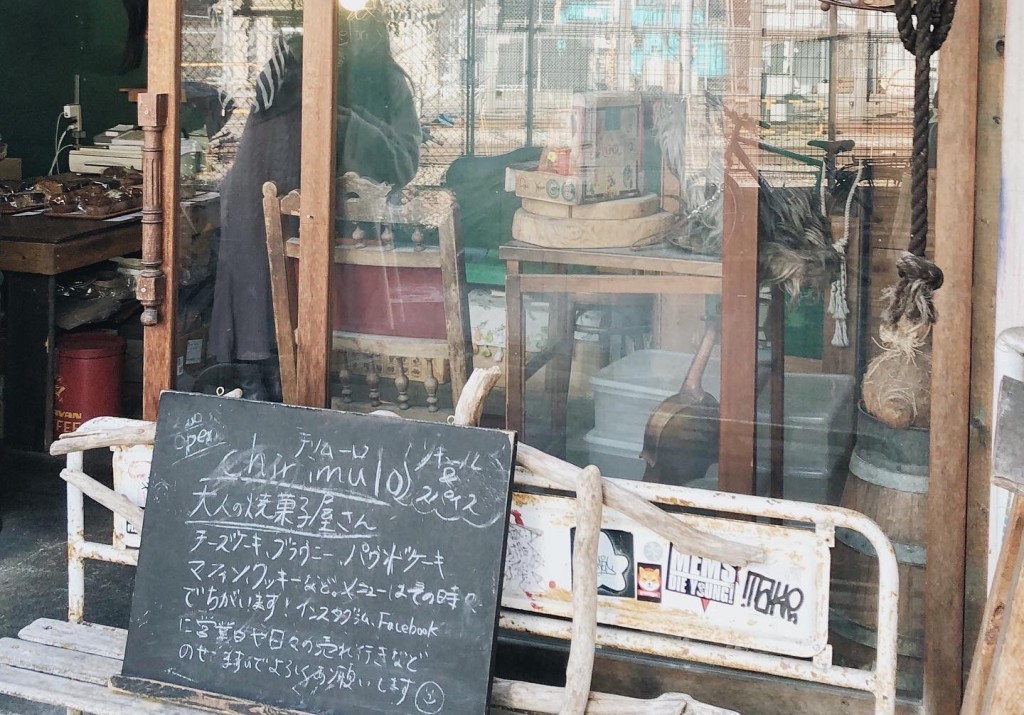 Open
チリムーロ
chirimulo
リキュール
スパイス
大人の焼菓子屋さん
チーズケーキ、ブラウニー、パウンドケーキ
マフィン、クッキーなど。メニューはその時々
でちがいます!インスタグラム、Facebook
に営業日や日々の売れ行きなど
のせてますのでよろしくお願いします
MEMS
DIETSUNG!